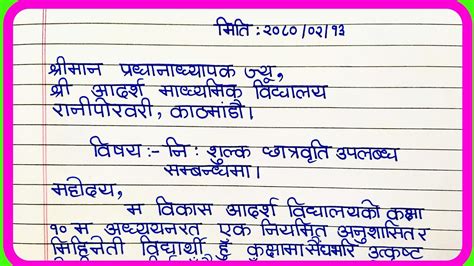 मिति : २०८०/०२/१३
श्रीमान प्रधानाध्यापक ज्यू,
श्री आदर्श माध्यमिक विद्यालय
रानीपोखरी, काठमांडौ।
विषय :- नि : शुल्क छात्रवृति उपलब्ध
सम्बन्धमा।
महोदय,
म विकास आदर्श विद्यालयको कक्षा
१० म अध्ययनरत एक नियमित अनुशासित र
मिहिनेती विद्यार्थी हुँ कक्षामा सँधैभरि उत्कृष्ट